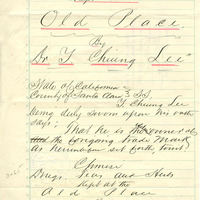 Old Place.
By
Dr. T Chiung Lee
State of California
County of Santa Ana } SS
T. Chiung Lee
being duly sworn upon his oath
says; That he is the owner of
the foregoing trade mark
as hereinbefore set forth towit:
Chinese
Drugs, Teas and Herbs
kept at the
Old Place